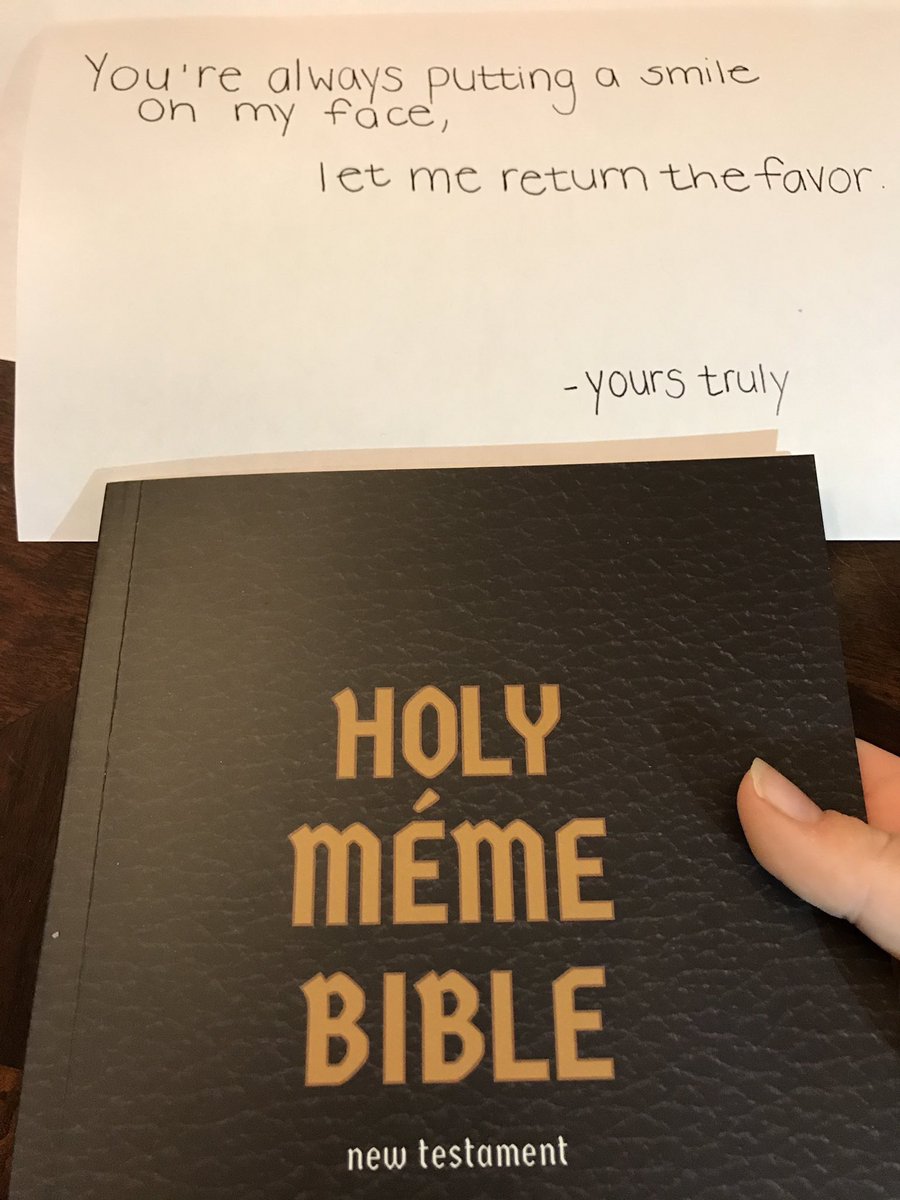 You're always putting a smile
on my face,
let me return the favor.
-yours truly
HOLY
MÉME
BIBLE
new testament